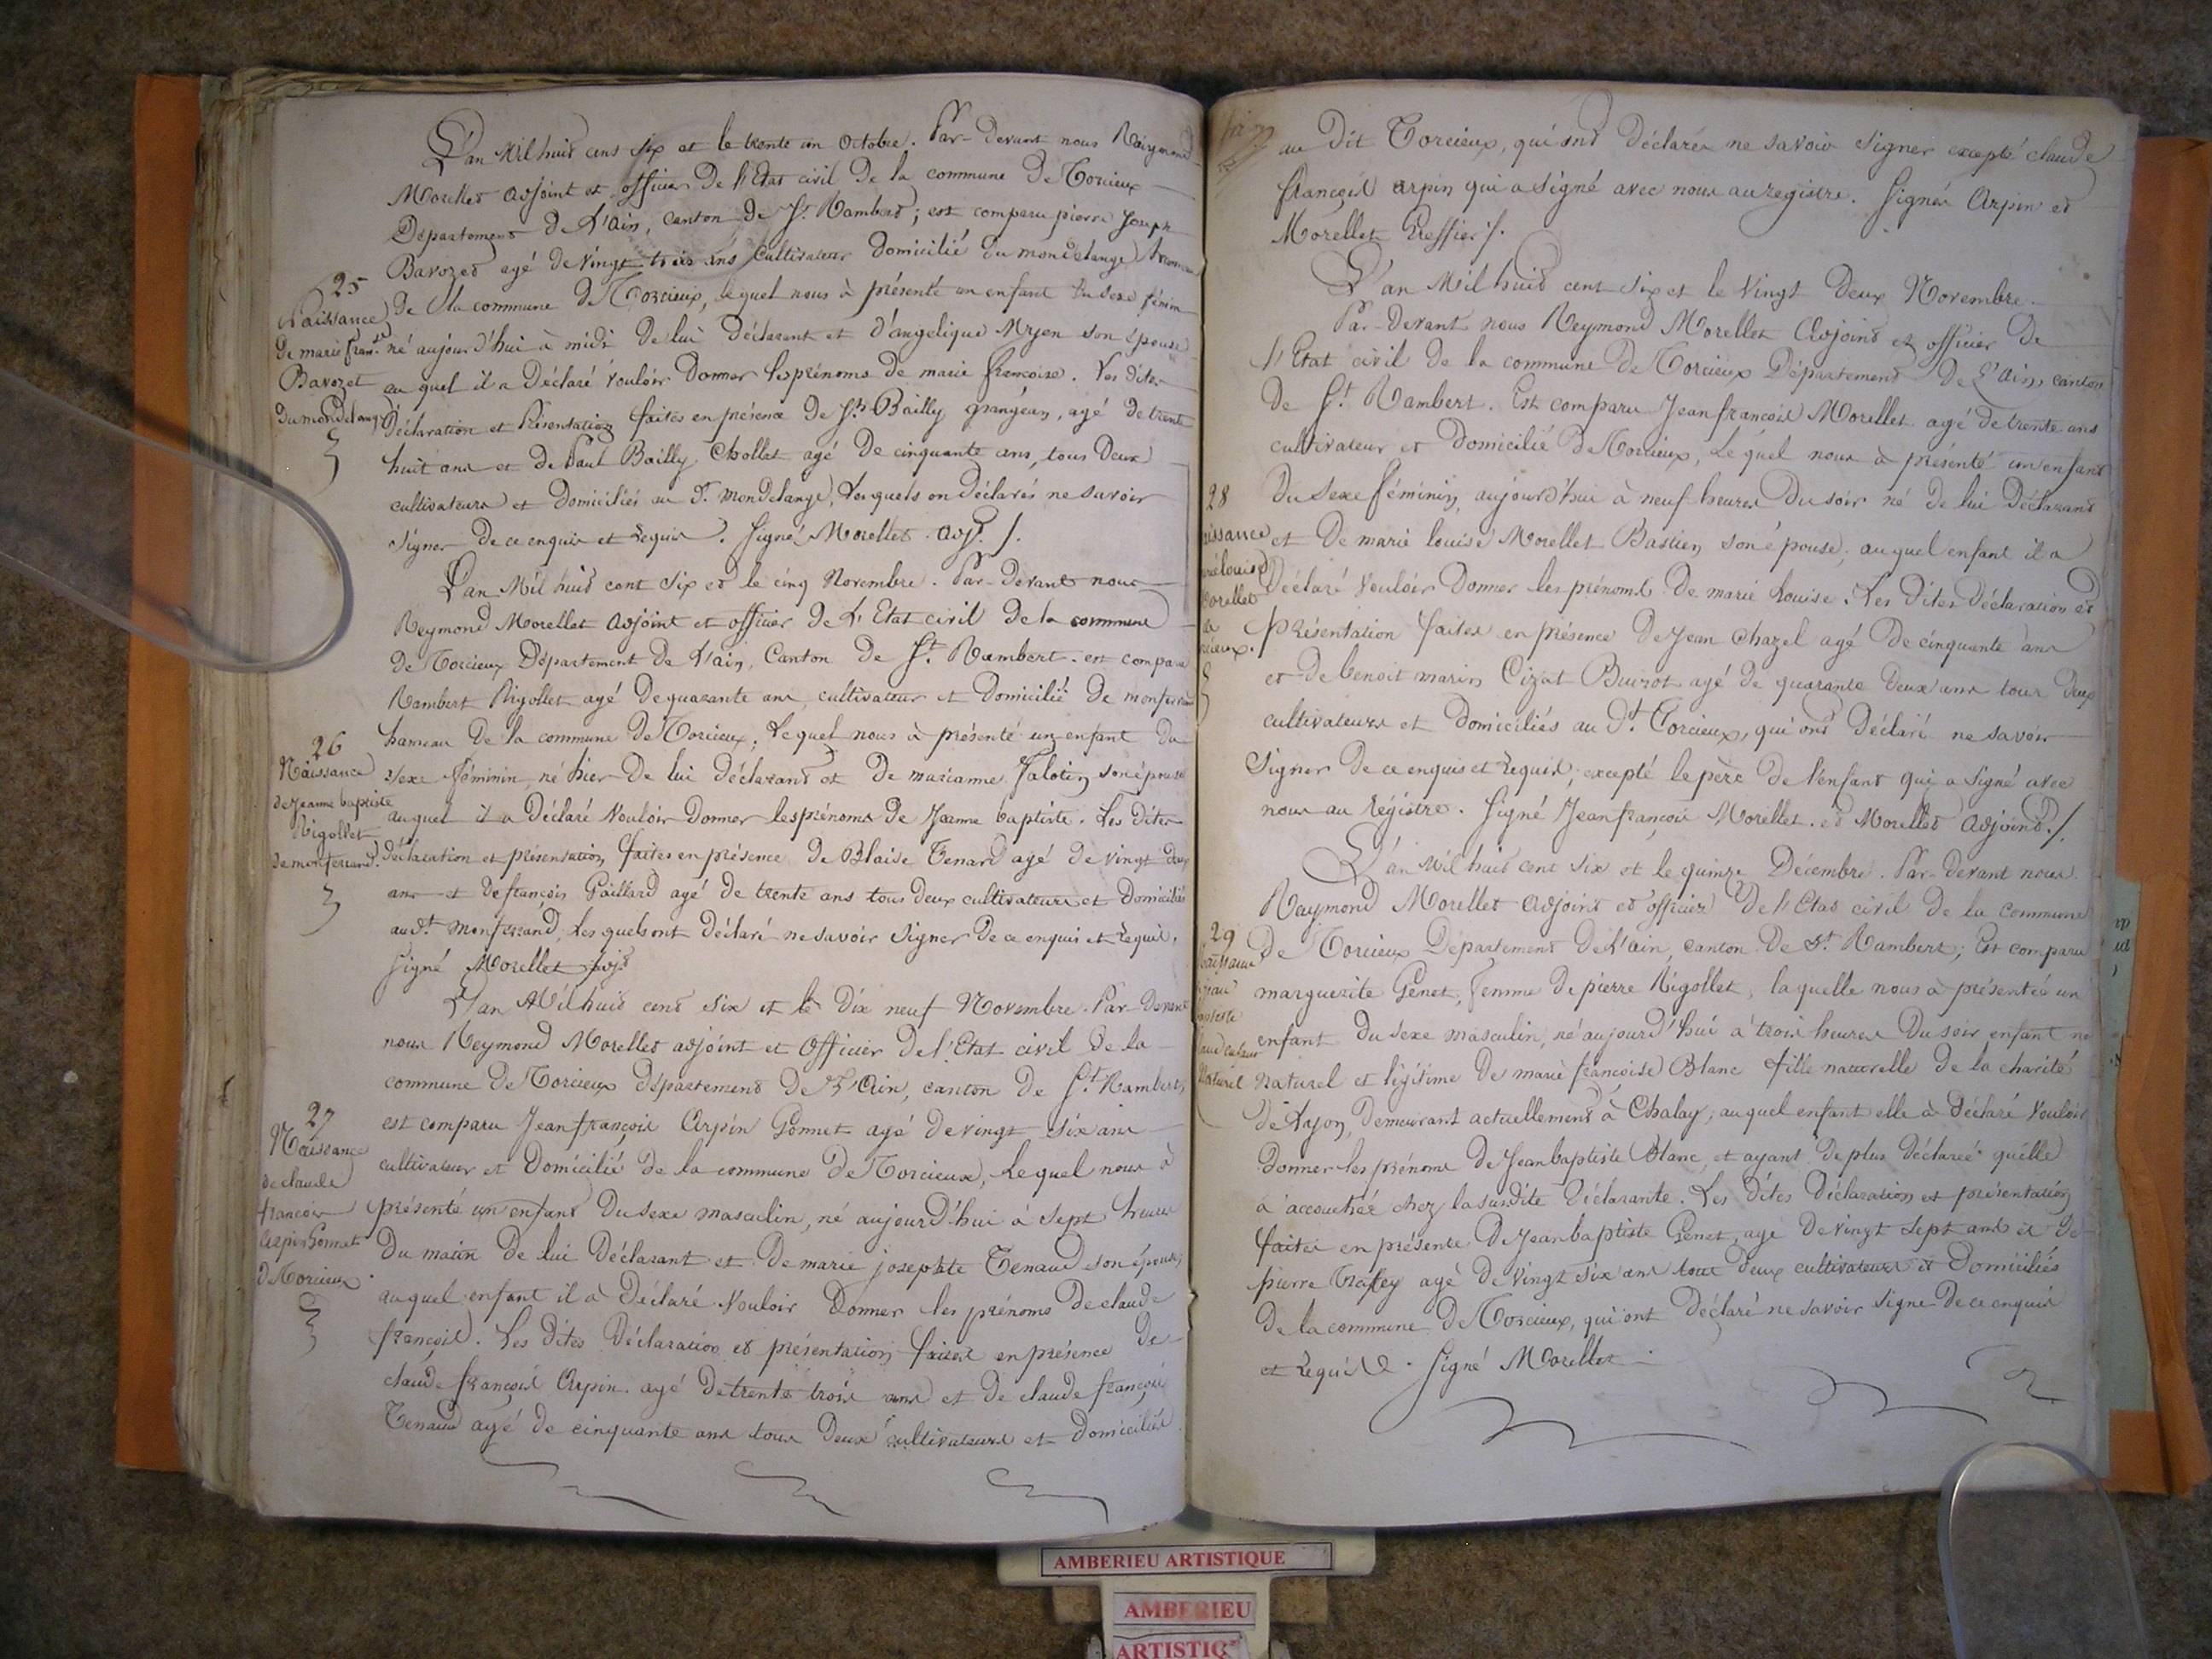 L'an Mil huit cens six et le trente un Octobre. Par-devant nous Reymond
Morellet adjoint et officier de l'Etat civil de la commune de Torcieux
Département de L'ain, canton de St. Rambert; est comparu pierre Joseph
Bavozet agé de vingt trois ans cultivateur domicilié du mondelange hameau
25
Naissance
de marie franse
Bavozet
du mondelange
de la commune de Torcieux, lequel nous à présenté un enfant du sexe fémin
né aujourd'hui à midi de lui déclarant et d'angelique son épouse
auquel il a Déclaré vouloir donner les prénoms de marie francoise. Les dites
Déclaration et Présentation faites en présence de Jh. Bailly grangean, agé de trente
huit ans et de Paul Bailly Chollet agé de cinquante ans, tous deux
cultivateurs et domiciliés au dt. mondelange, Lesquels on déclarés ne savoir
signer de ce enquis et requis. Signé Morellet adjt. /.
L'an Mil huit cent six et le cinq Novembre. Par-devant nous
Reymond Morellet adjoint et officier de L'Etat civil de la commune
de Torcieux Département de L'ain, Canton de St. Rambert. est comparu
Rambert Rigollet agé de quarante ans, cultivateur et domicilié de monferrand
26
Naissance
de Jeanne baptiste
Rigollet
de monferrand.
hameau de la commune de Torcieux, Lequel nous à présenté un enfant du
sexe féminin, né hier de lui déclarant et de marianne Jalotin son épouse
auquel il a Déclaré vouloir donner les prénoms de Jeanne baptiste. Les dites
déclaration et présentation faites en présence de Blaise Tenard agé de vingt deux
ans et de françois Gaillard agé de trente ans tous deux cultivateurs et domiciliés
au dt. monferrand, Lesquels ont déclaré ne savoir signer de ce enquis et requis.
signé Morellet adjt
L'an Mil huit cent six et le dix neuf Novembre. Par-devant
nous Reymond Morellet adjoint et Officier de l'Etat civil de la
commune de Torcieux département de L'Ain, canton de St. Rambert,
27
Naissance
de claude
francois
Arpin Gonnet
de Torcieux
est comparu Jean françois Arpin Gonnet agé de vingt six ans
cultivateur et domicilié de la commune de Torcieux, Lequel nous à
présenté un enfant du sexe masculin, né aujourd'hui à sept heures
du matin de lui déclarant et de marie josephte Tenaud son épouse,
auquel enfant il à déclaré vouloir donner les prénoms de claude
françois. Les dites déclaration et présentation faites en présence de
claude françois Arpin agé de trente trois ans et de claude françois
Tenaud agé de cinquante ans tous deux cultivateurs et domiciliés
au dit Torcieux, qui ont déclarés ne savoir signer excepté claude
françois arpin qui a signé avec nous au registre. Signés Arpin et
Morellet Greffier /.
L'an Mil huit cent six et le vingt deux Novembre.
Par-devant nous Reymond Morellet Adjoint et officier de
l'Etat civil de la commune de Torcieux Département de L'ain, canton
de St. Rambert. Est comparu Jean francois Morellet agé de trente ans
cultivateur et domicilié de Torcieux, Lequel nous à présenté un enfant
28
issance
louise
orellet
cieux.
du sexe féminin, aujourd'hui à neuf heures du soir né de lui déclarant
et de marie louise Morellet Bastien son épouse, auquel enfant il a
déclaré vouloir donner les prénoms de marie Louise. Les dites déclaration et
présentation faites en présence de Jean Chazel agé de cinquante ans
et de benoit marin Cizat Buizot agé de quarante deux ans tous deux
cultivateurs et domiciliés au dt. Torcieux, qui ont déclaré ne savoir
signer de ce enquis et requis, excepté le père de l'enfant qui a signé avec
nous au régistre. Signé Jean françois Morellet. et Morellet adjoint. /.
L'an Mil huit cent six et le quinze Décembre. Par-devant nous
Reymond Morellet adjoint et officier de l'Etat civil de la commune
29
aissance
jean
aptiste
Naturel
de Torcieux Département de L'ain, canton de St. Rambert; Est comparu
marguerite Génet, femme de pierre Rigollet, laquelle nous à présentée un
enfant du sexe masculin, né aujourd'hui à trois heures du soir enfant
naturel et légitime de marie francoise Blanc fille naturelle de la charité
de Lyon, demeurant actuellement à Chalay; auquel enfant elle à déclaré vouloir
donner les prénoms de Jean baptiste Blanc, et ayant de plus déclarée quélle
à accouchée chez la susdite déclarante. Les dites déclaration et présentation
faites en présence de Jean baptiste Génet, agé de vingt sept ans et de
pierre agé de vingt six ans tous deux cultivateurs et domiciliés
de la commune de Torcieux, qui ont déclaré ne savoir signe de ce enquis
et requise. Signé Morellet
AMBERIEU ARTISTIQUE
AMBERIEU
ARTISTIQ